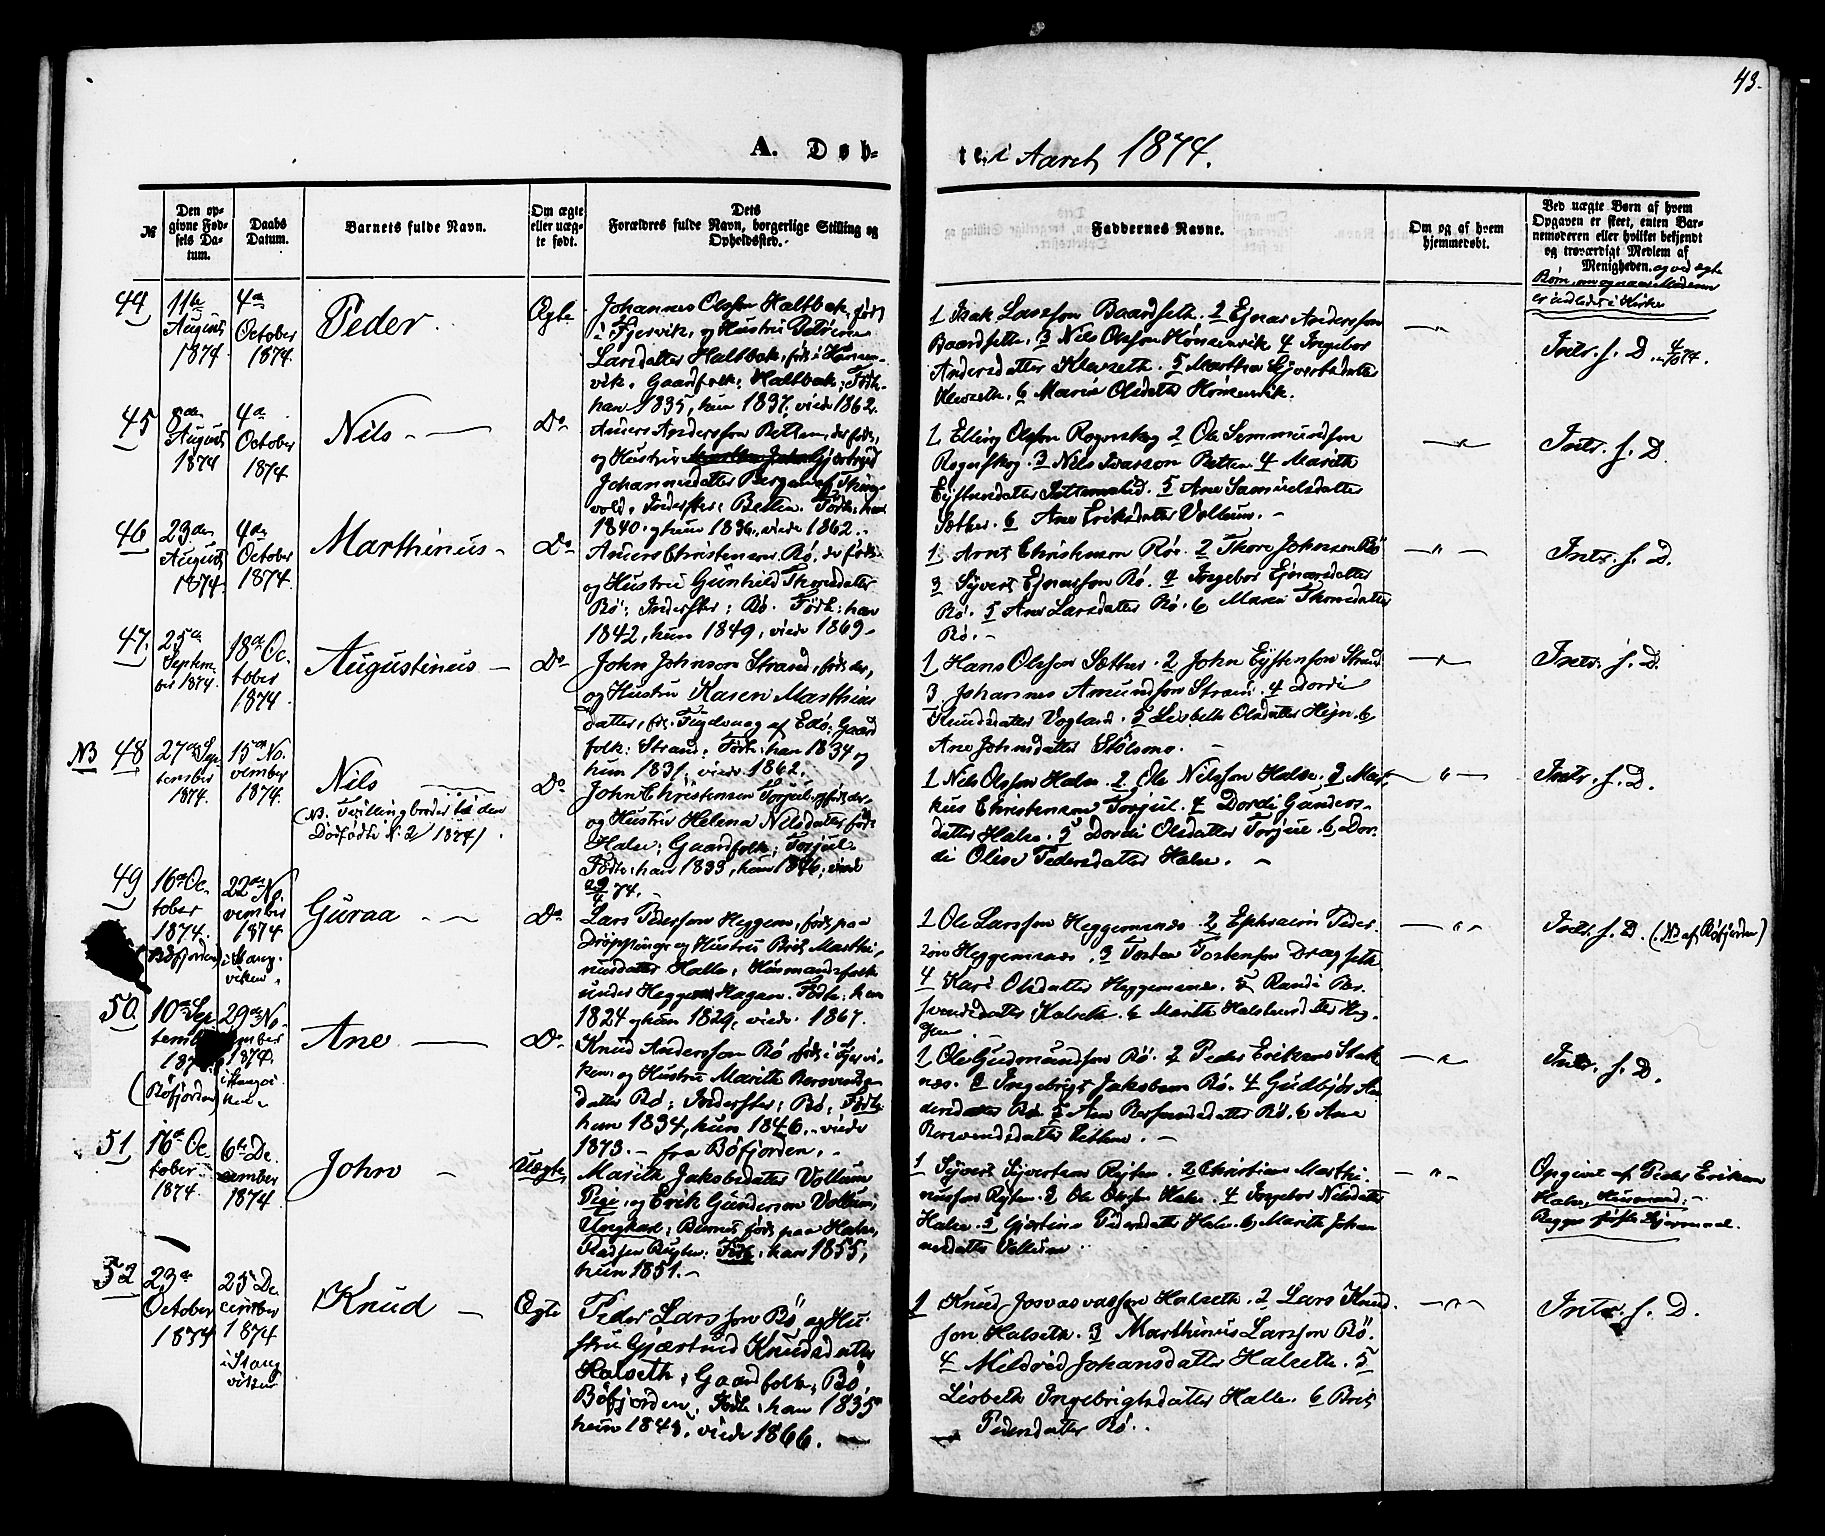 43.
A. Døb-
te i Aaret 1874.
№
Den op-
givne Fød-
sels Da-
tum.
Daabs
Datum.
Barnets fulde Navn.
Om ægte
eller uæg-
te født.
Dets
Forældres fulde Navn, borgerlige Stilling og
Opholdssted.
Faddernes Navne.
Om og af hvem
hjemmedøbt.
Ved uægte Børn af hvem
Opgaven er skeet, enten Bar-
nemoderen eller hvilket bekjendt
og troværdigt Medlem af
Menigheden. og ved ægte
Børn, om og naar Moderen
er indledet i Kirke
44
11te
August
1874.
4de
October
1874.
Peder
Ægte
Johannes Olsson Haltbak, født
i Fjervik, og Hustru
Larsdatter Haltbak, født i
vik. Gaardfolk: Haltbak; Født:
han 1835, hun 1837, viede 1862.
1 Isak Larsson Baardseth. 2 Ejnar Andersson
Baardseth. 3 Nils Olsson Hønsenvik 4 Ingebor
Andersdatter . 5 Marthe Sjvertsdatter
. 6 Marie Olsdatter Hønsenvik.
— " —
Intr. s. D. 4/10 74.
45
8de
August
1874
4de
October
1874
Nils
Do
Anders Andersson Betten, der født,
og Hustru Gjertrud
Johannesdatter Bergem af Thing-
vold, Inderster: Betten. Født: han
1840 og hun 1836, viede 1862.
1 Elling Olsson Rogenskog 2 Ole Semmundson
Rogenskog. 3 Nils Ivarson Betten. 4 Marith
Eystensdatter . 5 Ane Samuelsdatter
Sæther. 6 Ane Eriksdatter Vollum.
— " —
Intr. s. D.
46
23de
August
1874.
4de
October
1874.
Marthinus
Do
Anders Christensen Rø, der født,
og Hustru Gunhild Thoresdatter
Rø: Inderster: Rø. Født: han
1842, hun 1849, viede 1869.
1 Arnt Christensen Rø. 2 Thore Johnsen Rø
3 Sjvert Ejnarsson Rø. 4 Ingebor Ejnarsdatter
Rø. 5 Ane Larsdatter Rø. 6 Maren Thoresdatter
Rø.
— " —
Intr. s. D.
47.
25de
Septem-
ber 1874.
18de Oc-
tober
1874.
Augustinus
Do
John Johnson Strand, født der,
og Hustru Karen Marthins
datter, fr. af Edø: Gaard
folk: Strand: Født: han 1834 og
hun 1831, viede 1862.
1 Hans Olsson Sæther. 2 John Eystenson Strand
3 Johannes Amundson Strand. 4 Dordi
Knudsdatter Vogland. 5 Lisbeth Olsdatter . 6
Ane Johnsdatter Stølsmo.
— " —
Intr. s. D.
NB 48
27de Sep-
tember
1874.
15de No-
vember
1874.
Nils
(NB. Tvillingbroder til den
Dødfødte N: 2 / 1874)
Do
John Christensen Torjul, født der,
og Hustru Helena Nilsdatter, født
Halse; Gaardfolk: Torjul.
Født: han 1833, hun 1846, viede
74.
1 Nils Olsson Halse. 2 Ole Nilsson Halse. 3 Mar-
kus Christensen Torjul. 4 Dordi Gunders-
datter Halse. 5 Dordi Olsdatter Torjul. 6 Dor-
di Oline Pedersdatter Halse.
— " —
Intr. s. D.
49
16de Oc-
tober
1874.
(Bøfjorden)
22de No-
vember
1874
i Stang-
viken.
Guraa
Do
Lars Pedersson Heggem, født paa
Drøpping, og Hustru Brit Marthi-
nusdatter Halle: Husmandsfolk
under Heggem Hagan. Født: han
1824 og hun 1829, viede 1867.
1 Ole Larsson Heggemsnes. 2 Ephraim Peder-
son Heggemsnes. 3 Torsten Torstenson Dragseth.
4 Kari Olsdatter Heggemsnes. 5 Randi Ber-
svendsdatter Halseth. 6 Marith Halvorsdatter Heg-
gem
— " —
Intr. s. D. (NB af Bøfjorden)
50.
10de Sep-
tember
1874
(Bøfjorden)
29de No-
vember
1874.
i Stangvi-
ken.
Ane
Do
Knud Andersson Rø født i Fjervi-
ken og Hustru Marith Bersvends-
datter Rø: Inderster: Rø; Født:
han 1834, hun 1846, viede
1873. fra Bøfjorden.
1 Ole Gudmundson Rø. 2 Peder Eriksen Stak-
næs. 3 Ingebrigt Jakobsen Rø. 4 Gudbjør An-
dersdatter Rø. 5 Ane Bersvendsdatter Rø. 6 Ane
Bersvendsdatter .
— " —
Intr. s. D.
51
16de Oc-
tober
1874.
6te De-
cember
1874
John
Uægte
Marith Jakobsdatter Vollum
Pige, og Erik Gunderson Vollum,
Ungkarl; Barnet født paa Halse,
. Født: han 1855,
hun 1851.
1 Sjvert Sjvertsen Røsten. 2 Christian Marthi-
nussen Røsten. 3 Ole Olsson Halse. 4 Ingebor Nilsdatter
Halse. 5 Gjertine Pedersdatter Halse. 6 Marith Johan-
nesdatter Vollum.
— " —
Opgivet af Peder Eriksen
Halse, Husmand:
Begges første Leiermaal.
52
23de
October
1874
25de De-
cember
1874
i Stang-
viken
Knud
Ægte
Peder Larsson Rø og Hu-
stru Gjærtrud Knudsdatter
Halseth; Gaardfolk; Rø
Bøfjorden. Født: han 1835
hun 1843. viede 1866.
1 Knud Halseth. 2 Lars Knud-
son Halseth. 3 Marthinus Larsson Rø.
4 Mildrid Johansdatter Halseth. 5
Lisbeth Ingebrigtsdatter Halle. 6 Brit
Pedersdatter Rø.
— " —
Intr. s. D.